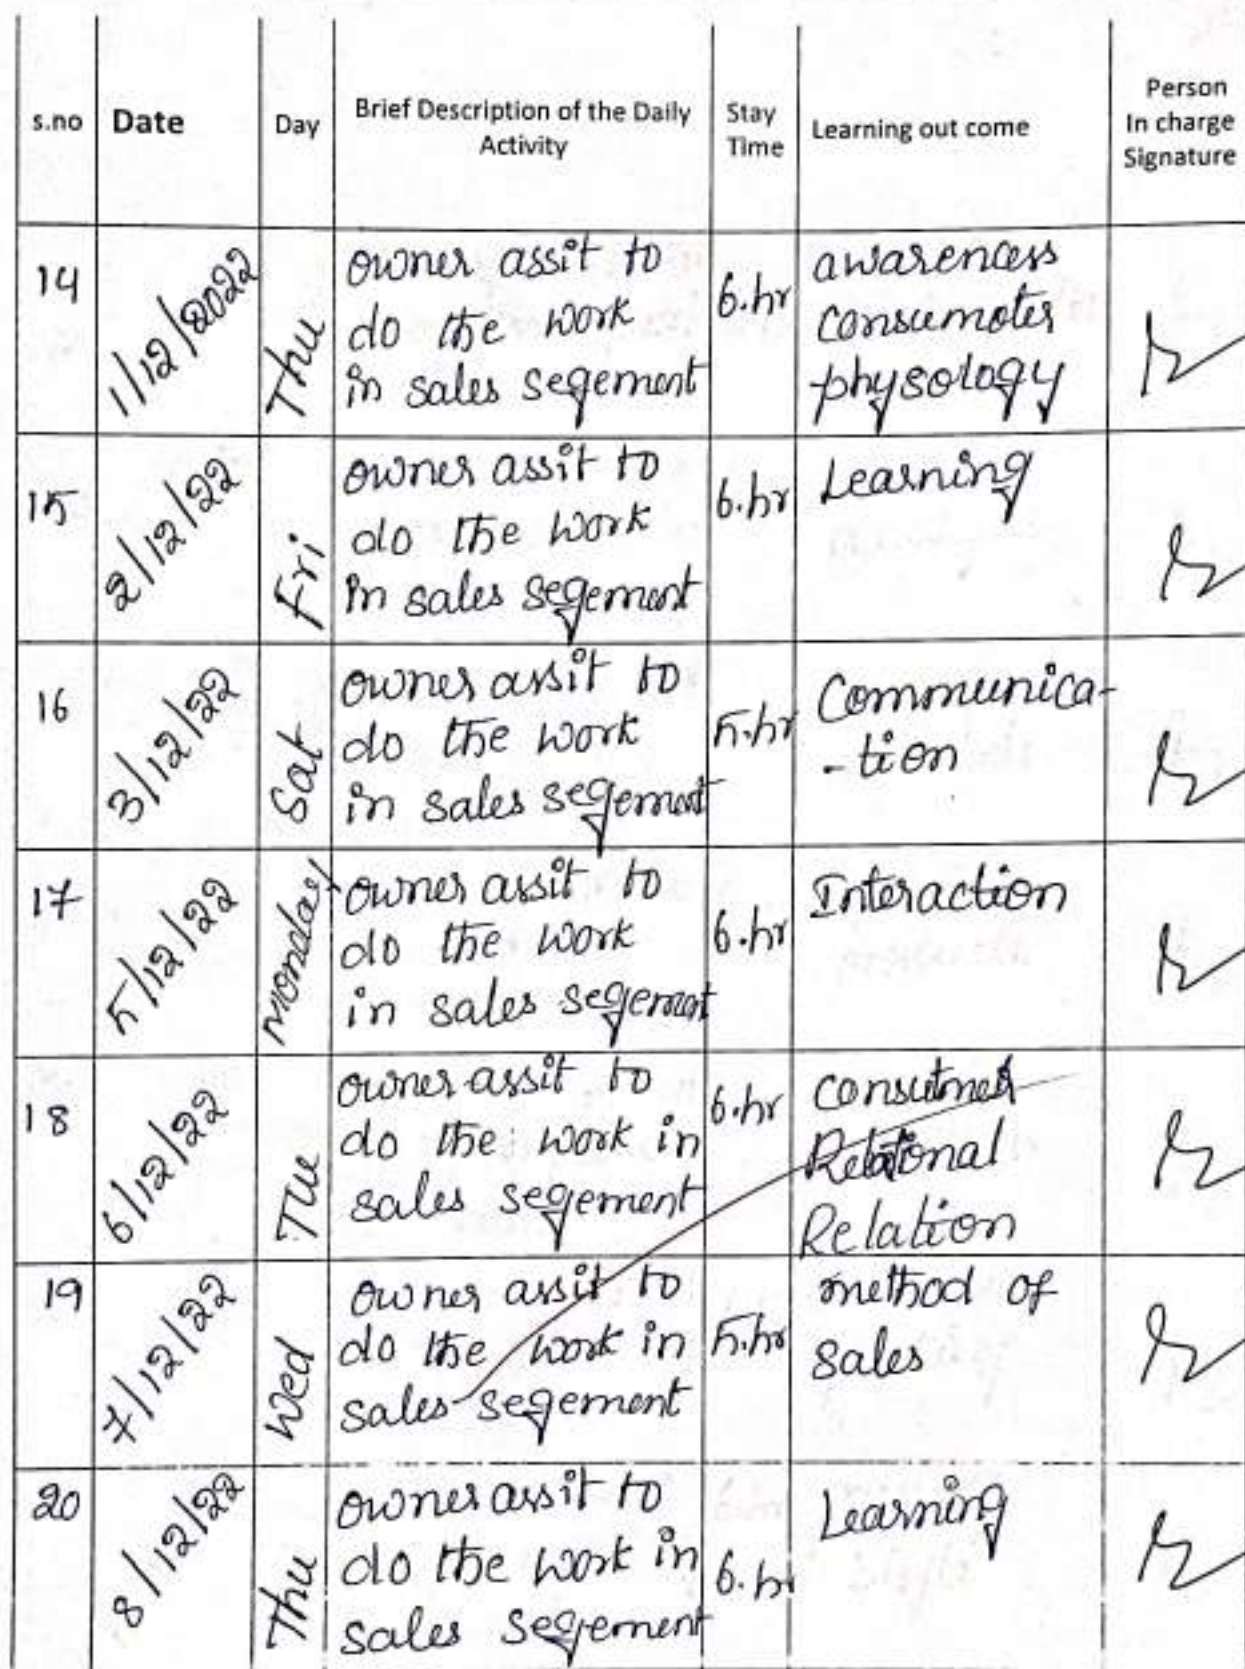 s.no Date Day Brief Description of the Daily Activity Stay Time Learning out come Person In charge Signature
14 1/12/2022 Thu owner assit to do the work in sales segement 6.hr awarencess consumoter physology
15 2/12/22 Fri owner assit to do the work in sales segement 6.hr Learning
16 3/12/22 Sat owner assit to do the work in sales segement 5.hr Communica- -tion
17 5/12/22 Monday owner assit to do the work in sales segement 6.hr Interaction
18 6/12/22 Tue owner assit to do the work in sales segement 6.hr Relation
19 7/12/22 Wed owner assit to do the work in sales segement 5.hr method of sales
20 8/12/22 Thu owner assit to do the work in sales segement 6.hr Learning